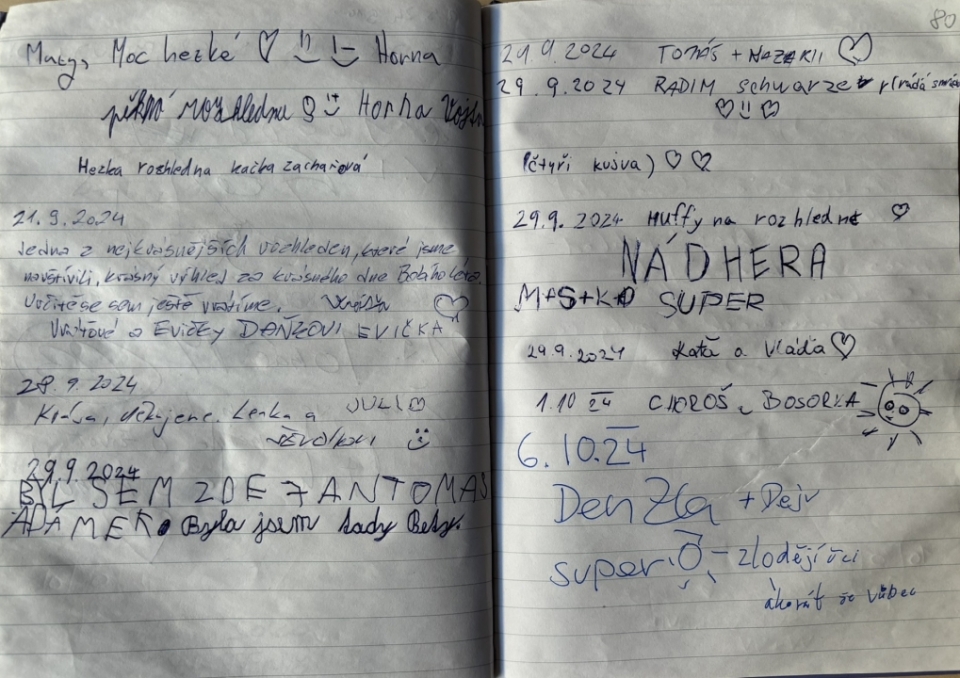 Moc hezké Horna
pěkná rozhledna Horna
Hezka rozhledna kačka zachařová
21.9.2024
Jedna z nejkrásnějších rozhleden, které jsme
navštívili, krásný výhled za krásného dne Babího léta.
Určitě se sem ještě vrátíme.
a Evičky DAŇKOVI EVIČKA
28.9.2024
Krása, děkujeme. Lenka a JULI
29.9.2024
BYL SEM ZDE FANTOMAS
ADÁMEK. Byla jsem tady Bety.
80
29.9.2024 TOMÁŠ +
29.9.2024 RADIM schwarzer
(čtyři
29.9.2024 Huffy na rozhledně
NÁDHERA
M+S+K+D SUPER
29.9.2024 Kača a Vláďa
1.10 24 CHOROŠ a BOSORKA
6.10.24
DenZla + Dejv
super - zlodějíčci
akorát že vůbec